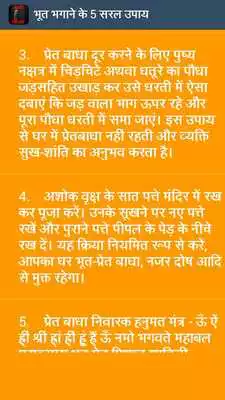 भूत भगाने के 5 सरल उपाय
3. प्रेत बाधा दूर करने के लिए पुष्य
नक्षत्र में चिड़चिटे अथवा धतूरे का पौधा
जड़सहित उखाड़ कर उसे धरती में ऐसा
दबाएं कि जड़ वाला भाग ऊपर रहे और
पूरा पौधा धरती में समा जाएं। इस उपाय
से घर में प्रेतबाधा नहीं रहती और व्यक्ति
सुख-शांति का अनुभव करता है।
4. अशोक वृक्ष के सात पत्ते मंदिर में रख
कर पूजा करें। उनके सूखने पर नए पत्ते
रखें और पुराने पत्ते पीपल के पेड़ के नीचे
रख दें। यह क्रिया नियमित रूप से करें,
आपका घर भूत-प्रेत बाधा, नजर दोष आदि
से मुक्त रहेगा।
5. प्रेत बाधा निवारक हनुमत मंत्र - ऊँ ऐं
ह्रीं श्रीं ह्रां ह्रीं ह्रूं ह्रैं ऊँ नमो भगवते महाबल